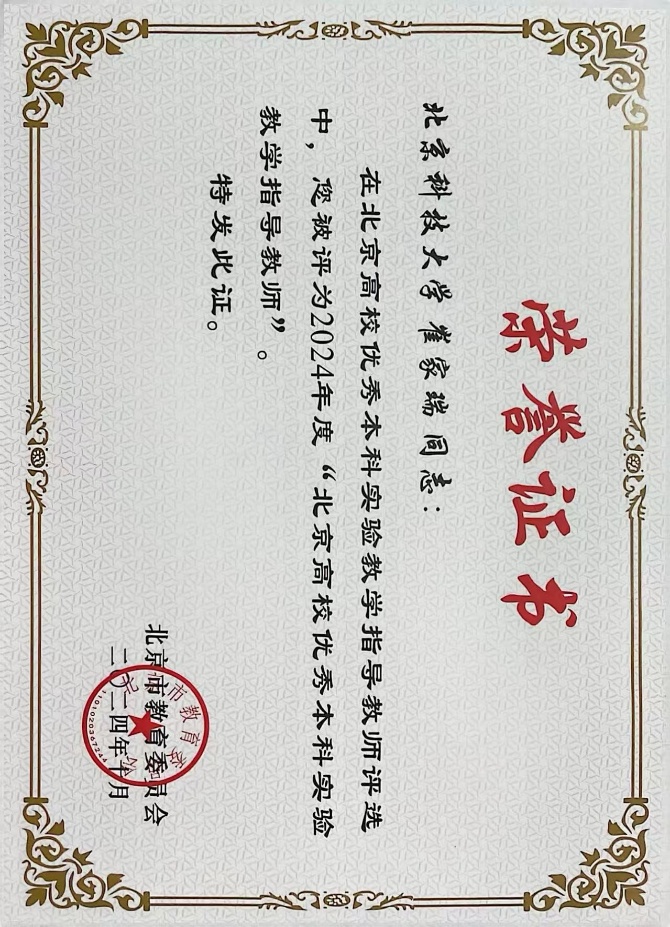 荣誉证书
北京科技大学崔家瑞同志：
在北京高校优秀本科实验教学指导教师评选
中，您被评为2024年度“北京高校优秀本科实验
教学指导教师”。
特发此证。
北京市教育委员会
二〇二四年十月
市教育委